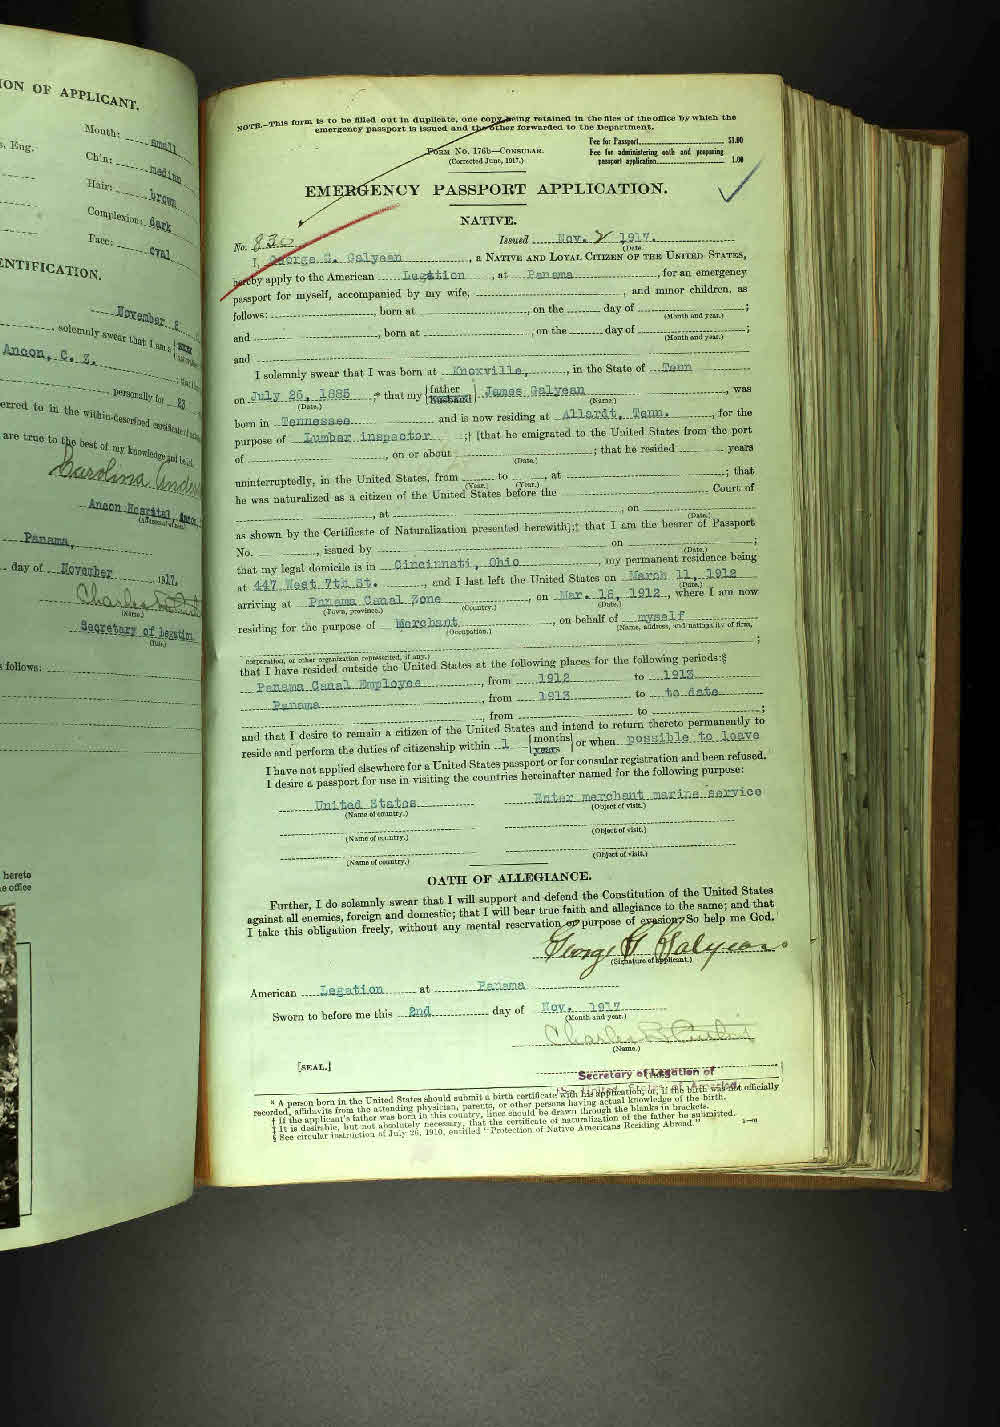 ION OF APPLICANT.
Mouth: small
s, Eng.
Chin: median
Hair: brown
Complexion: dark
Face: oval
ENTIFICATION.
November 2
, solemnly swear that I am a
Ancon, C. Z.
personally for 23
erred to in the within-described certificate of
are true to the best of my knowledge and belief.
Carolina Anders
Ancon Hospital, Ancon,
(Address of
Panama,
day of November, 1917.
Charles
(Name.)
Secretary of Legation
(Title.)
s follows:
hereto
e office
NOTE.—This form is to be filled out in duplicate, one copy being retained in the files of the office by which the
emergency passport is issued and the other forwarded to the Department.
FORM NO. 176b—CONSULAR.
(Corrected June, 1917.)
Fee for Passport $1.00
Fee for administering oath and preparing
passport application 1.00
EMERGENCY PASSPORT APPLICATION.
NATIVE.
No. 830
Issued Nov. 2 1917.
(Date.
I, George G. Galyean, a NATIVE AND LOYAL CITIZEN OF THE UNITED STATES,
hereby apply to the American Legation, at Panama, for an emergency
passport for myself, accompanied by my wife, , and minor children, as
follows: , born at , on the day of ;
(Month and year.)
and , born at , on the day of ;
(Month and year.)
and
I solemnly swear that I was born at Knoxville, , in the State of Tenn
on July 26, 1885 ;* that my {father husband} James Galyean, was
(Date.) (Name.)
born in Tennessee and is now residing at Allardt, Tenn., for the
purpose of Lumber inspector ;† [that he emigrated to the United States from the port
of , on or about ; that he resided years
(Date.)
uninterruptedly, in the United States, from to , at ; that
(Year.) (Year.)
he was naturalized as a citizen of the United States before the Court of
, at , on
(Date.)
as shown by the Certificate of Naturalization presented herewith];‡ that I am the bearer of Passport
No. , issued by on ;
(Date.)
that my legal domicile is in Cincinnati, Ohio, my permanent residence being
at 447 West 7th St., and I last left the United States on March 11, 1912
(Date.)
arriving at Panama Canal Zone, on Mar. 18, 1912., where I am now
(Town, province.) (Country.) (Date.)
residing for the purpose of Merchant, on behalf of myself
(Occupation.) (Name, address, and nationality of firm,
;
corporation, or other organization represented, if any.)
that I have resided outside the United States at the following places for the following periods:§
Panama Canal Employee, from 1912 to 1913
Panama, from 1913 to to date
, from to ;
and that I desire to remain a citizen of the United States and intend to return thereto permanently to
reside and perform the duties of citizenship within 1 {months years} or when possible to leave
I have not applied elsewhere for a United States passport or for consular registration and been refused.
I desire a passport for use in visiting the countries hereinafter named for the following purpose:
United States Enter merchant marine service
(Name of country.) (Object of visit.)
(Name of country.) (Object of visit.)
(Name of country.) (Object of visit.)
OATH OF ALLEGIANCE.
Further, I do solemnly swear that I will support and defend the Constitution of the United States
against all enemies, foreign and domestic; that I will bear true faith and allegiance to the same; and that
I take this obligation freely, without any mental reservation or purpose of evasion: So help me God.
George G Galyean
(Signature of applicant.)
American Legation at Panama
Sworn to before me this 2nd day of Nov. 1917
(Month and year.)
Charles B. Curtis
(Name.)
[SEAL.]
Secretary of Legation of
the United States of America.
* A person born in the United States should submit a birth certificate with his application, or, if the birth was not officially
recorded, affidavits from the attending physician, parents, or other persons having actual knowledge of the birth.
† If the applicant's father was born in this country, lines should be drawn through the blanks in brackets.
‡ It is desirable, but not absolutely necessary, that the certificate of naturalization of the father be submitted.
§ See circular instruction of July 26, 1910, entitled "Protection of Native Americans Residing Abroad."